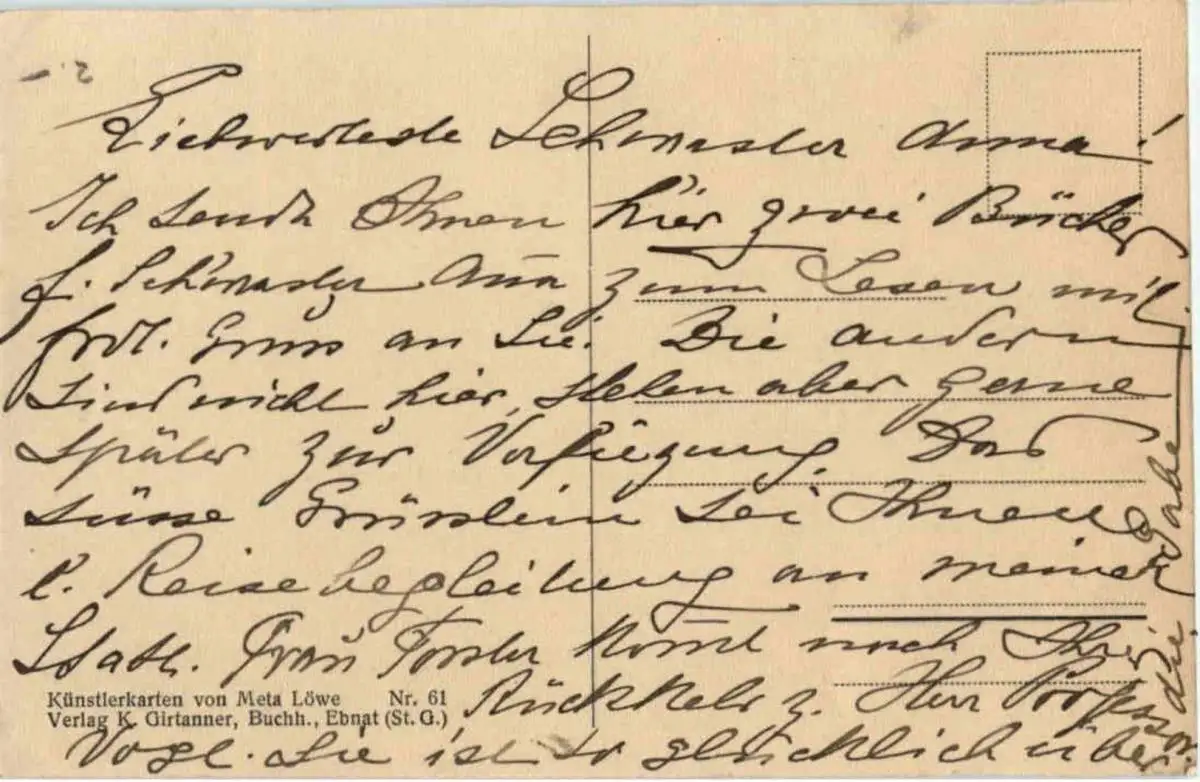 Liebwerteste Schwester Anna!
Ich sende Ihnen hier zwei Bücher
f. Schwester Anna zum Lesen mit
frdl. Gruss an Sie. Die andern
sind nicht hier, stehen aber gerne
später zur Verfügung. Das
süsse Grüsslein sei Ihnen
e. Reisebegleitung an meiner
Statt. Frau Forster kommt nach Ihrer
Rückkehr z. Herr Professor
Vogl. Sie ist so glücklich über
die Gabe
Künstlerkarten von Meta Löwe Nr. 61
Verlag K. Girtanner, Buchh., Ebnat (St. G.)